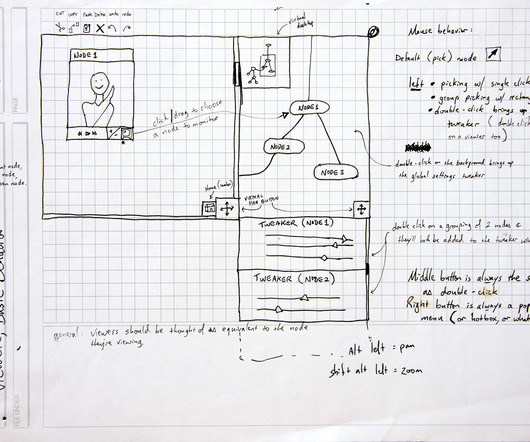 CUT COPY PASTE DELETE UNDO REDO
virtual desktop
NODE1
NODE 1
NODE 2
NODE 3
click/drag to choose
a node to monitor
VIRTUAL
PAN BUTTON
TWEAKER (NODE1)
TWEAKER (NODE2)
general: viewers should be thought of as equivalent to the node
they're viewing.
Alt left = pan
shift alt left = zoom
Mouse behavior:
Default (pick) mode
left • picking w/ single click
• group picking w/
• double-click brings up
tweaker (double click
on a viewer too)
double-click on the background brings up
the global settings tweaker
double click on a grouping of 2 nodes &
they'll both be added to the tweaker
Middle button is always the
as double-click
Right button is always a
menu (or hotbox, or
PAGE
node,
node,
node.